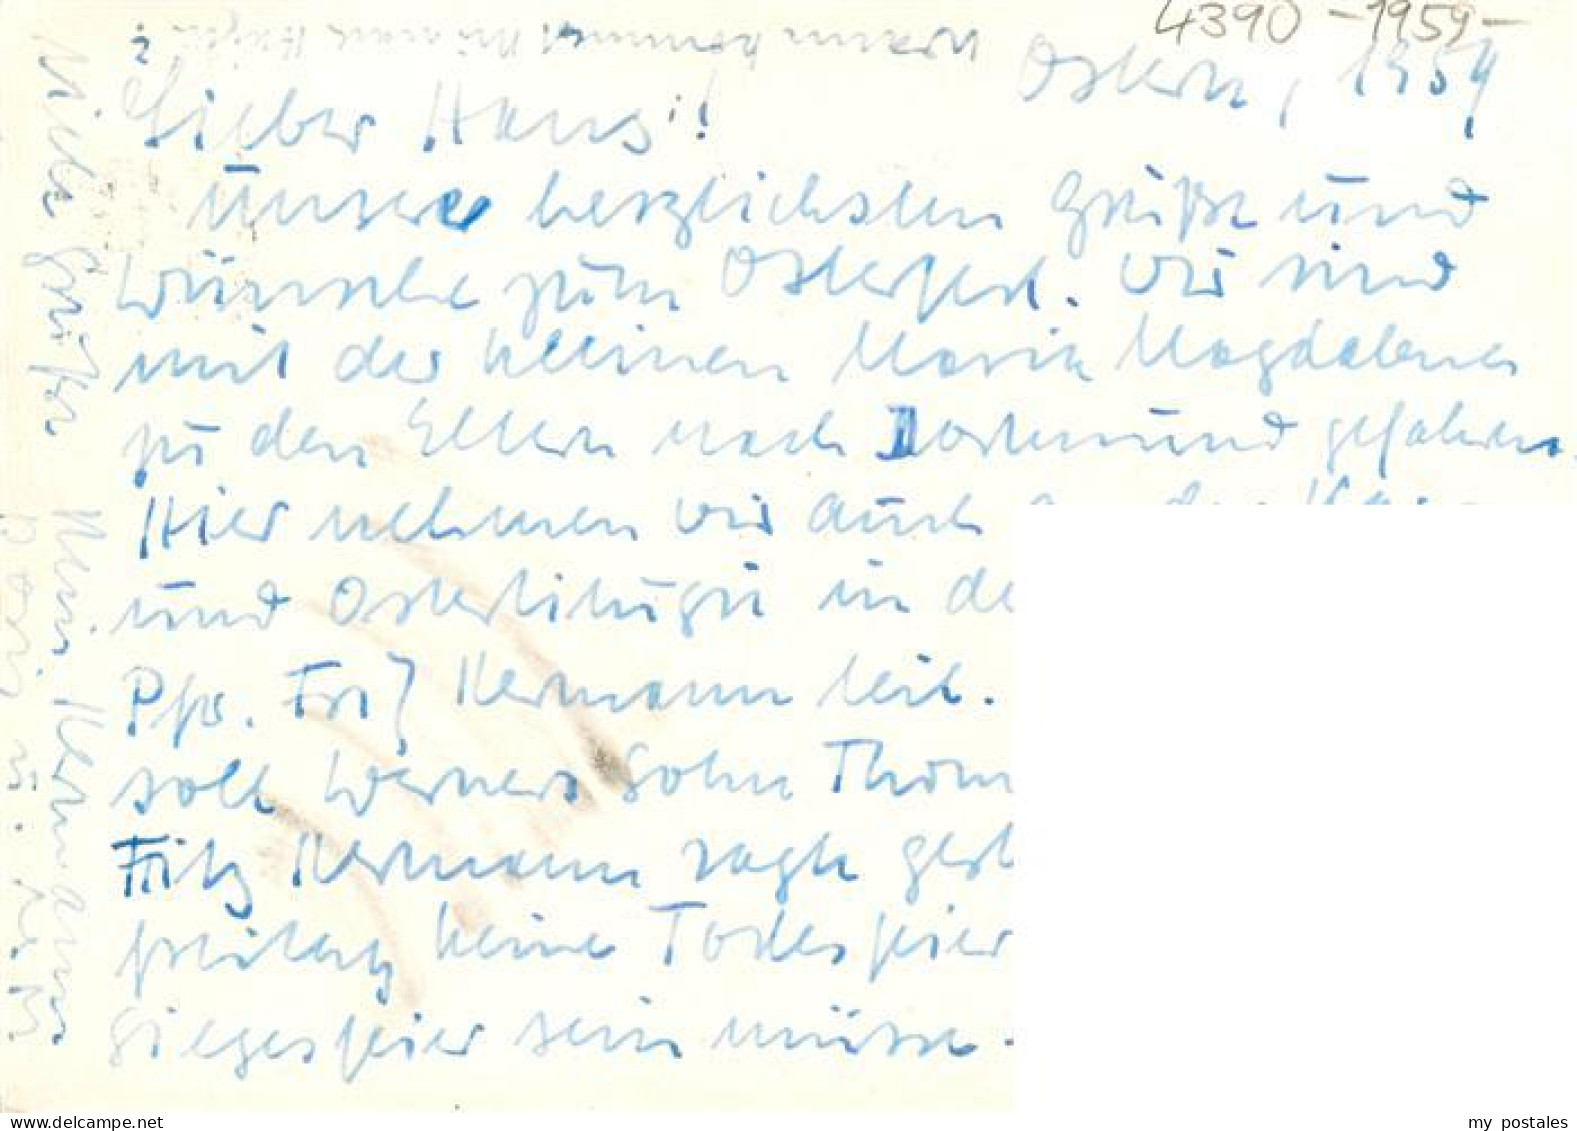 4390 -1959-
Ostern, 1959
Wann kommst Du nach
Lieber Hans!
Unsere herzlichsten Grüße und
Wünsche zum Osterfest. Wir sind
mit der kleinen Maria Magdalena
zu den Eltern nach Dortmund gefahren.
Hier nehmen wir auch an der
und Osterliturgie in de
Pfr. Fritz Hermann teil.
soll Werners Sohn Thom
Fritz Hermann sagte gest
freitag keine Todesfeier
Siegesfeier sein müsse.
Viele Grüße
www.delcampe.net
my postales